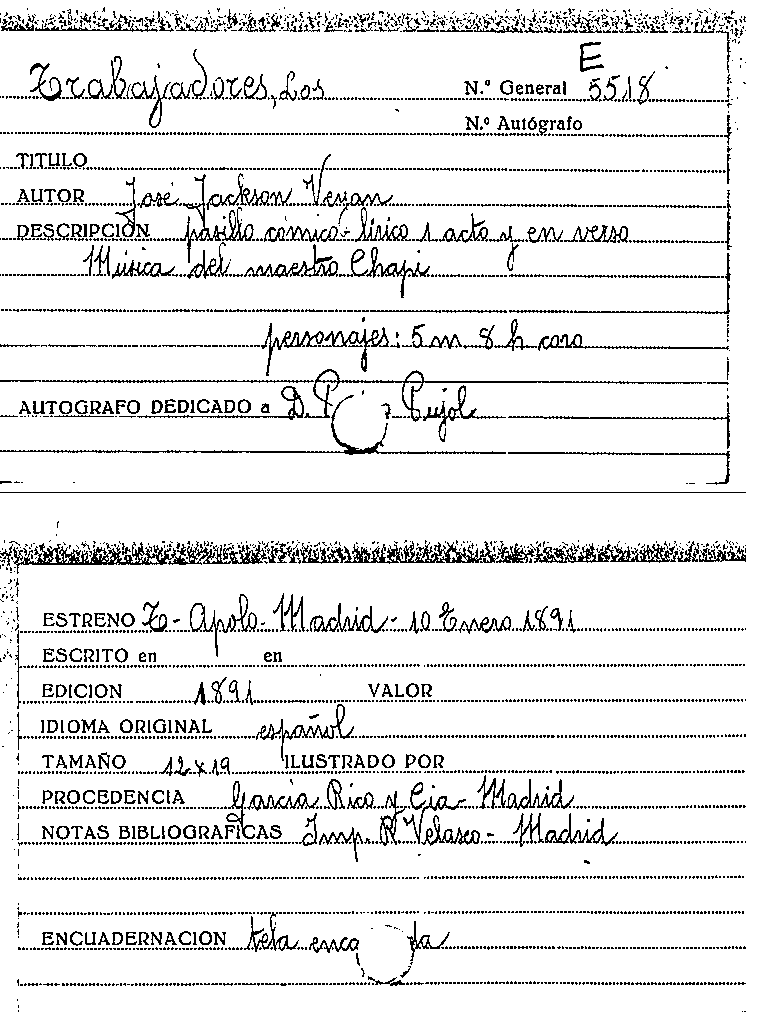 E
Trabajadores, Los N.º General 5518
N.º Autógrafo
TITULO
AUTOR José Jackson Veyan
DESCRIPCIÓN pasillo cómico-lírico 1 acto y en verso
Música del maestro Chapi
personajes: 5 m. 8 h coro
AUTOGRAFO DEDICADO a D. Pujol
ESTRENO T- Apolo- Madrid- 10 Enero 1891
ESCRITO en en
EDICION 1891 VALOR
IDIOMA ORIGINAL español
TAMAÑO 12x19 ILUSTRADO POR
PROCEDENCIA García Rico y Cia- Madrid
NOTAS BIBLIOGRAFICAS Imp. R. Velasco- Madrid
ENCUADERNACION tela